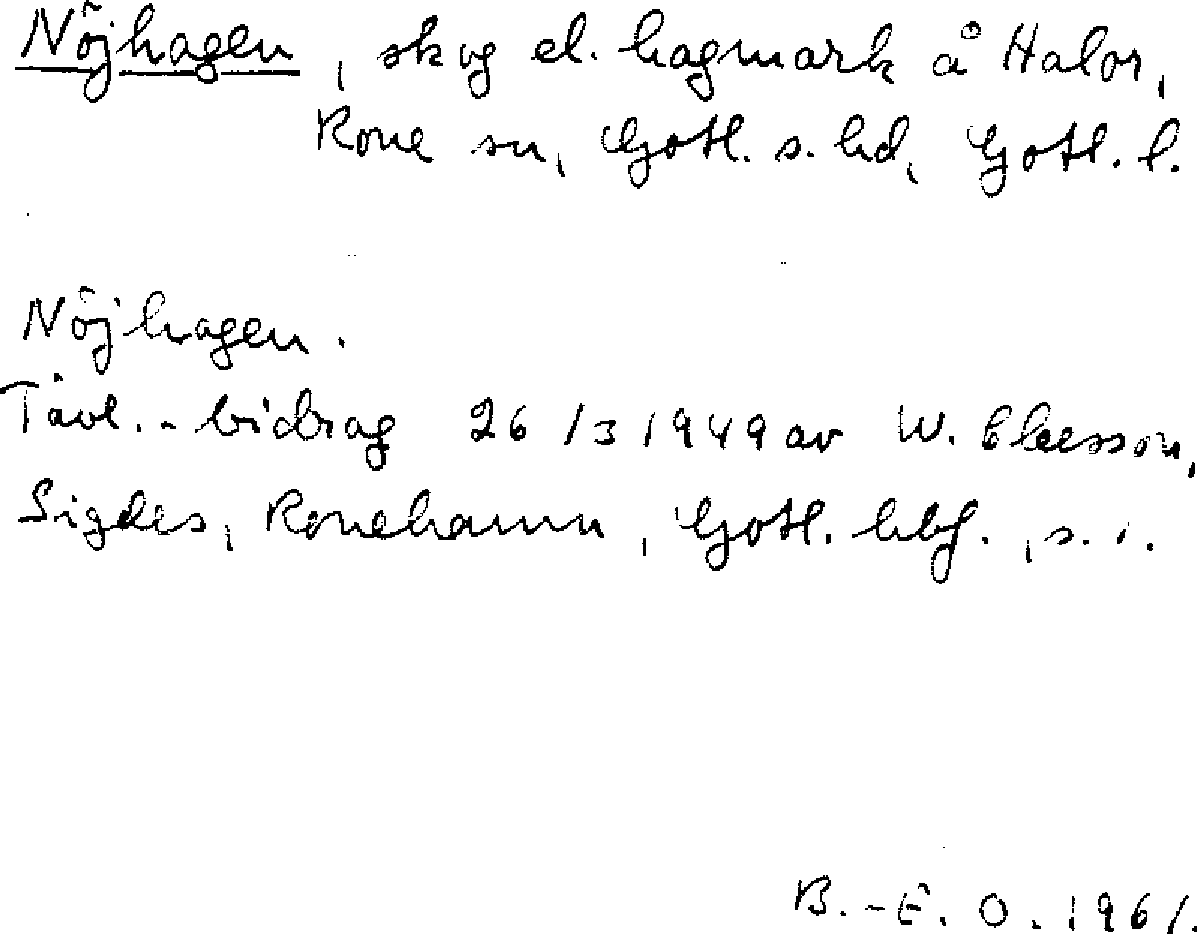 Nöjhagen, skog el. hagmark å Halor,
Rone sn, Gotl. s. hd, Gotl. l.
Nöjhagen.
Tävl.-bidrag 26/3 1949 av W. Claesson,
Sigdes, Ronehamn, Gotl. hbf., s. 1.
B.-E. O. 1961.